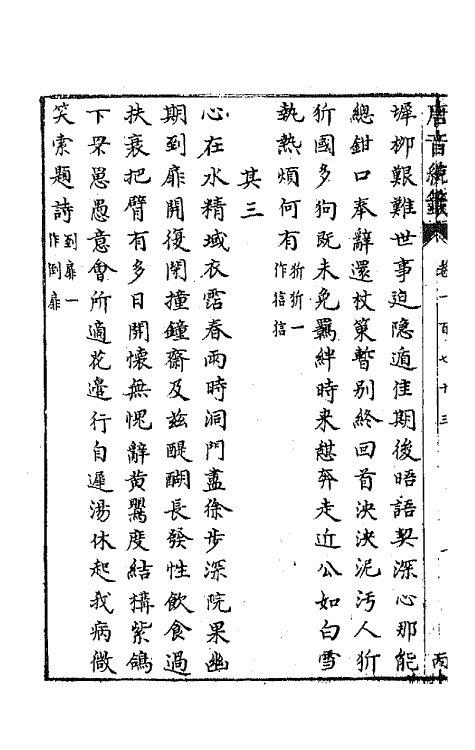 唐音統籤 卷一百七十三 一 丙
墀柳艱難世事迫隱遁佳期後晤語契深心那能
總鉗口奉辭還杖䇿暫別終回首泱泱泥污人㹞
㹞國多狗既未免羈絆時來憇奔走近公如白雪
執熱煩何有㹞㹞一作狺狺
其三
心在水精域衣霑春雨時洞門盡徐步深院果幽
期到扉開復閉撞鐘齋及兹醍醐長發性飲食過
扶衰把臂有多日開懷無愧辭黄鸎度結構紫鴿
下罘罳愚意會所適花邉行自遲湯休起我病微
笑索題詩到扉一作倒扉